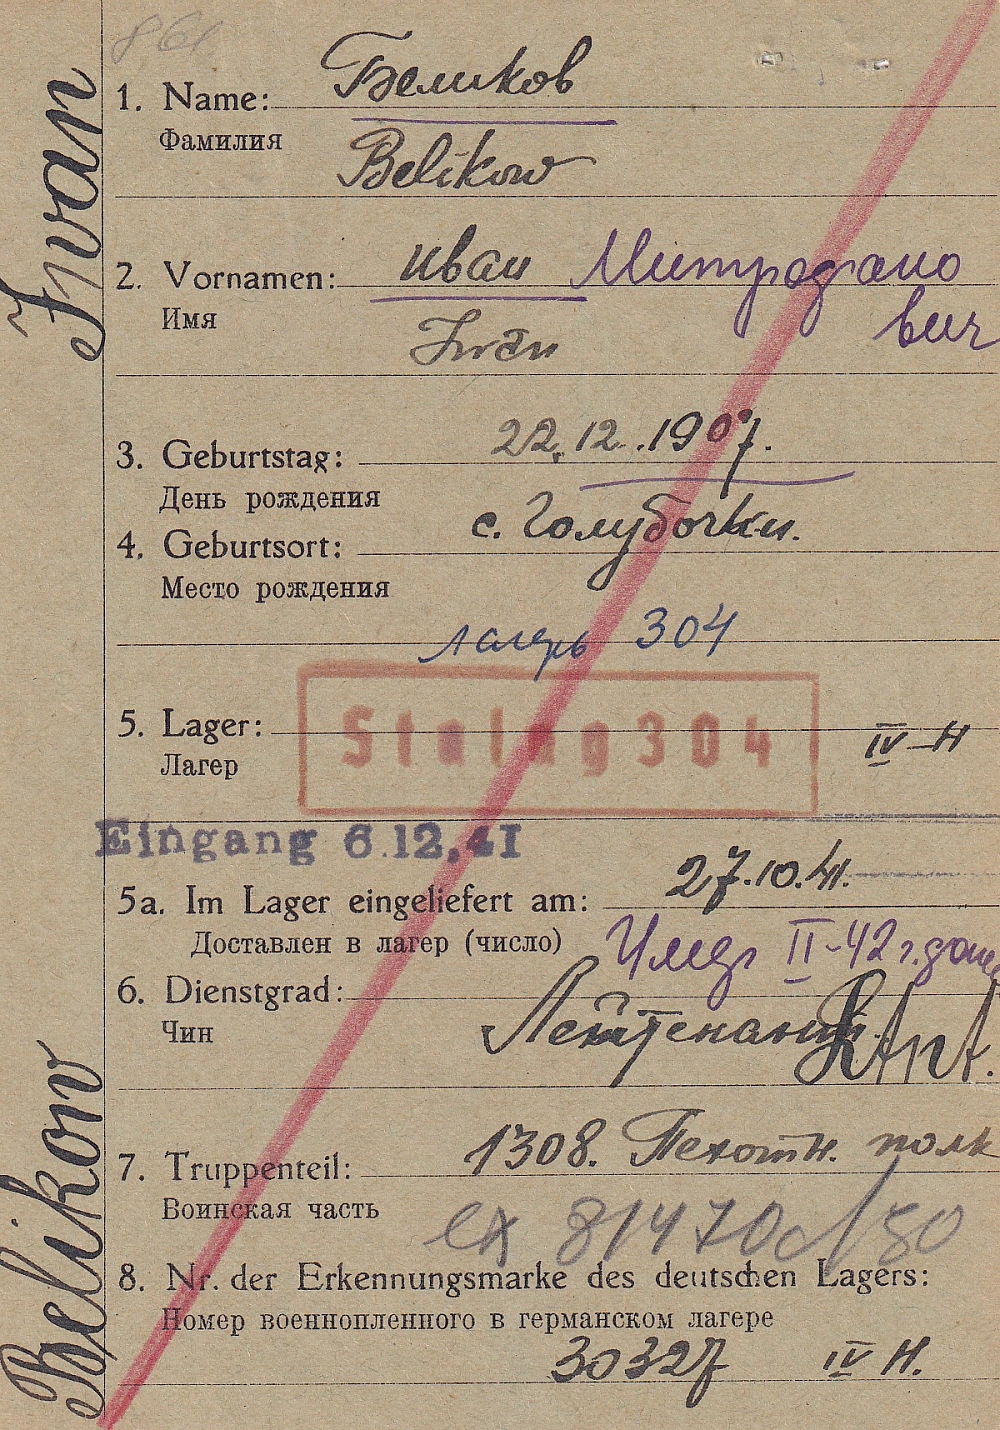 861
Iwan
1. Name: Беликов
Фамилия
Belikow
2. Vornamen: иван Митрофано
Имя вич
Iwan
3. Geburtstag: 22.12.1907.
День рождения
4. Geburtsort: с. Голубочки.
Место рождения
лагерь 304
5. Lager: Stalag 304 IV-H
Лагер
Eingang 6.12.41
5a. Im Lager eingeliefert am: 27.10.41.
Доставлен в лагер (число)
II-42 г.
6. Dienstgrad: Лейтенант.
Чин
7. Truppenteil: 1308. Пехотн. полк
Воинская часть
81470
8. Nr. der Erkennungsmarke des deutschen Lagers:
Номер военнопленного в германском лагере
30327 IV H.
Belikow